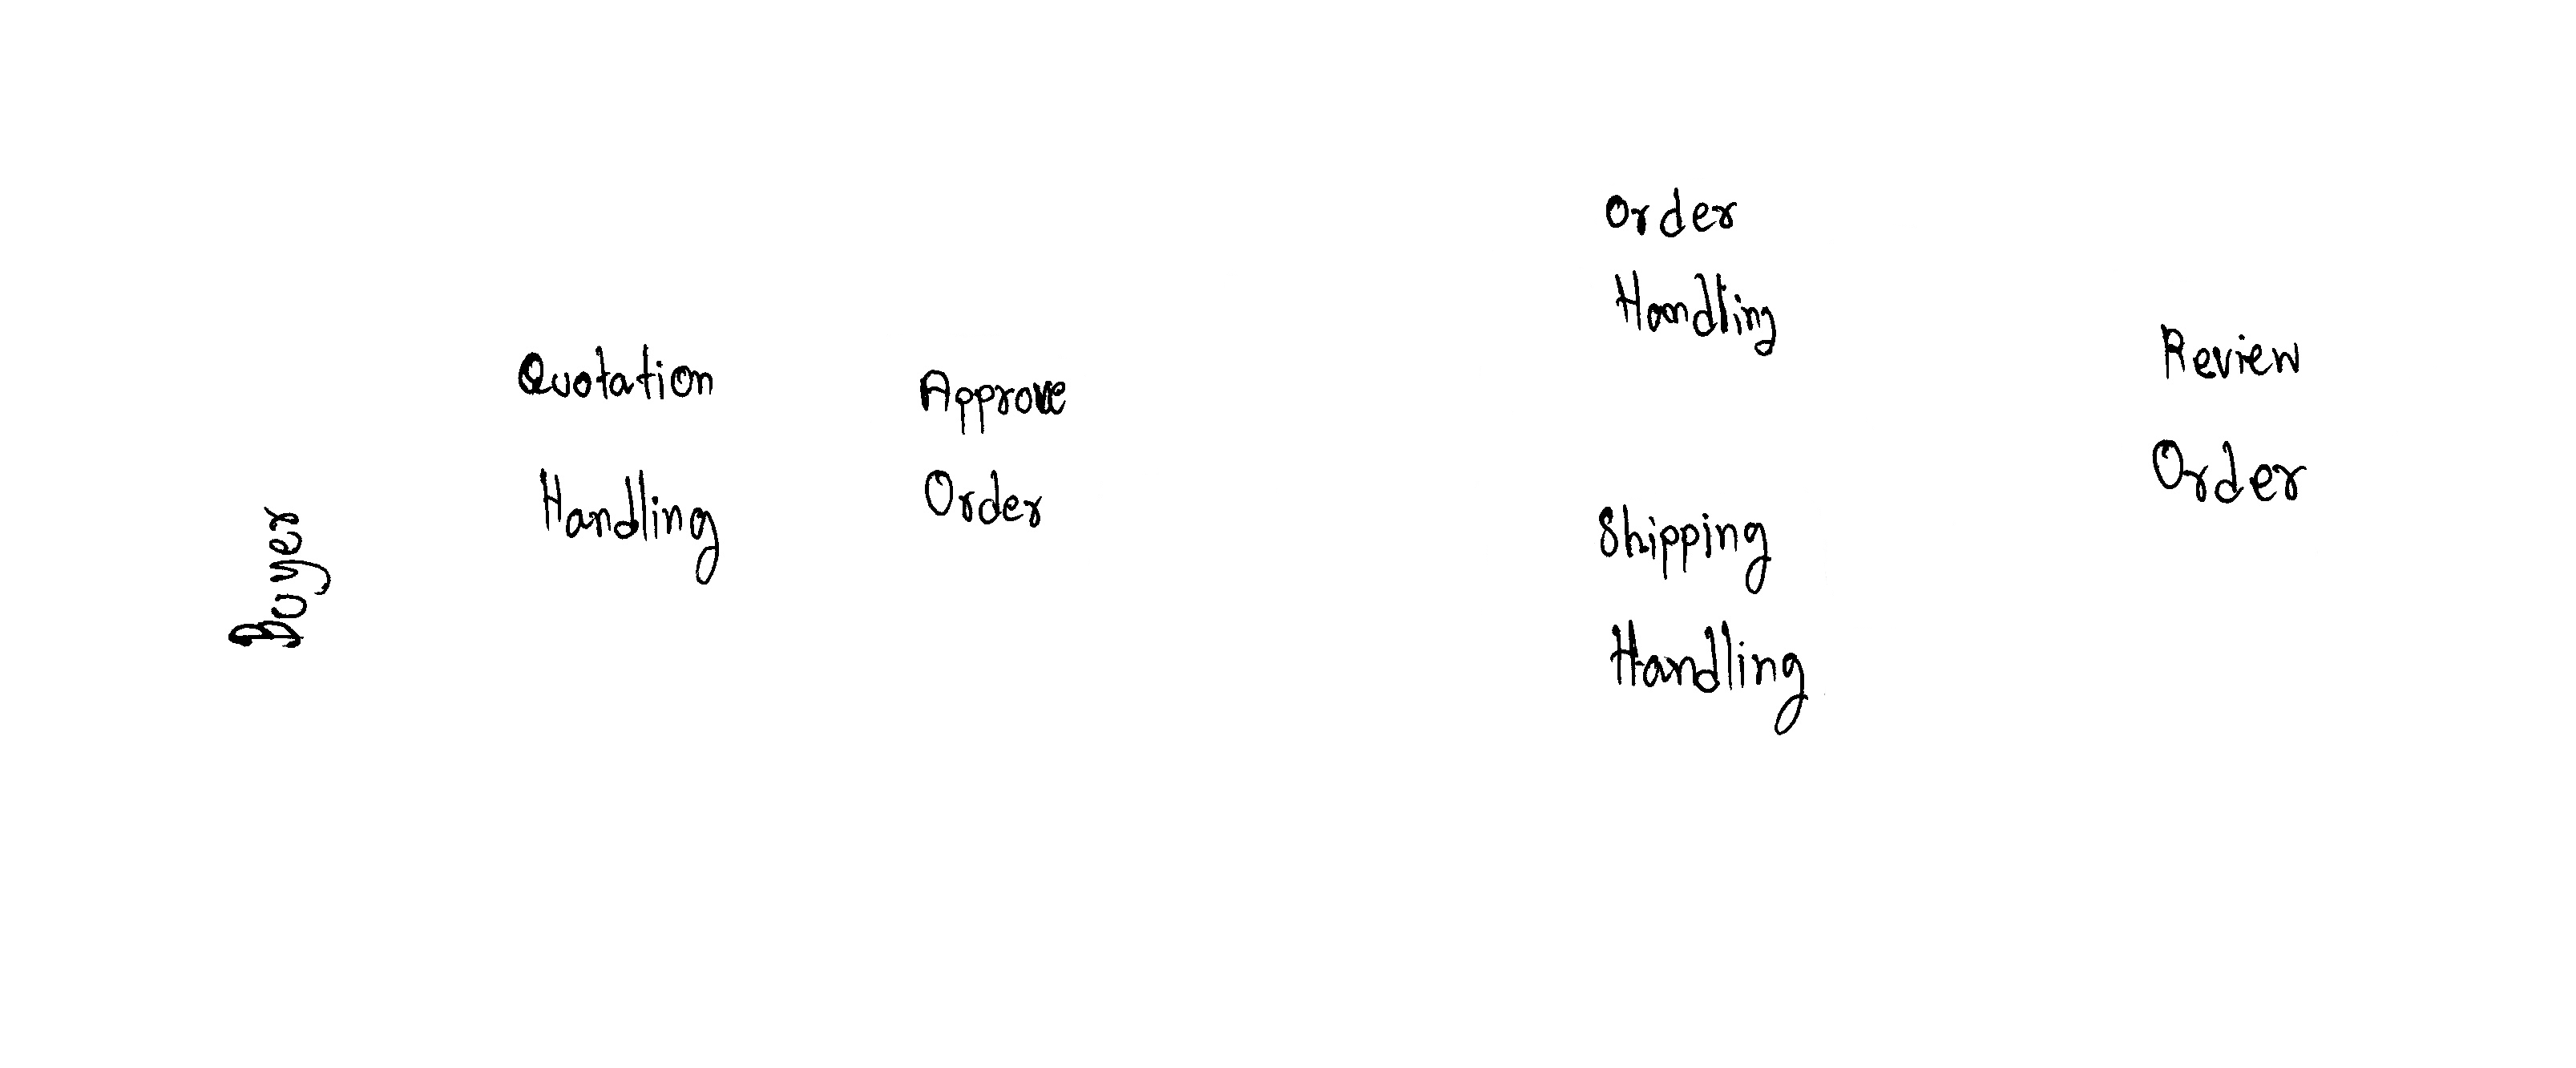 Buyer
Quotation
Handling
Approve
Order
Order
Handling
Shipping
Handling
Review
Order